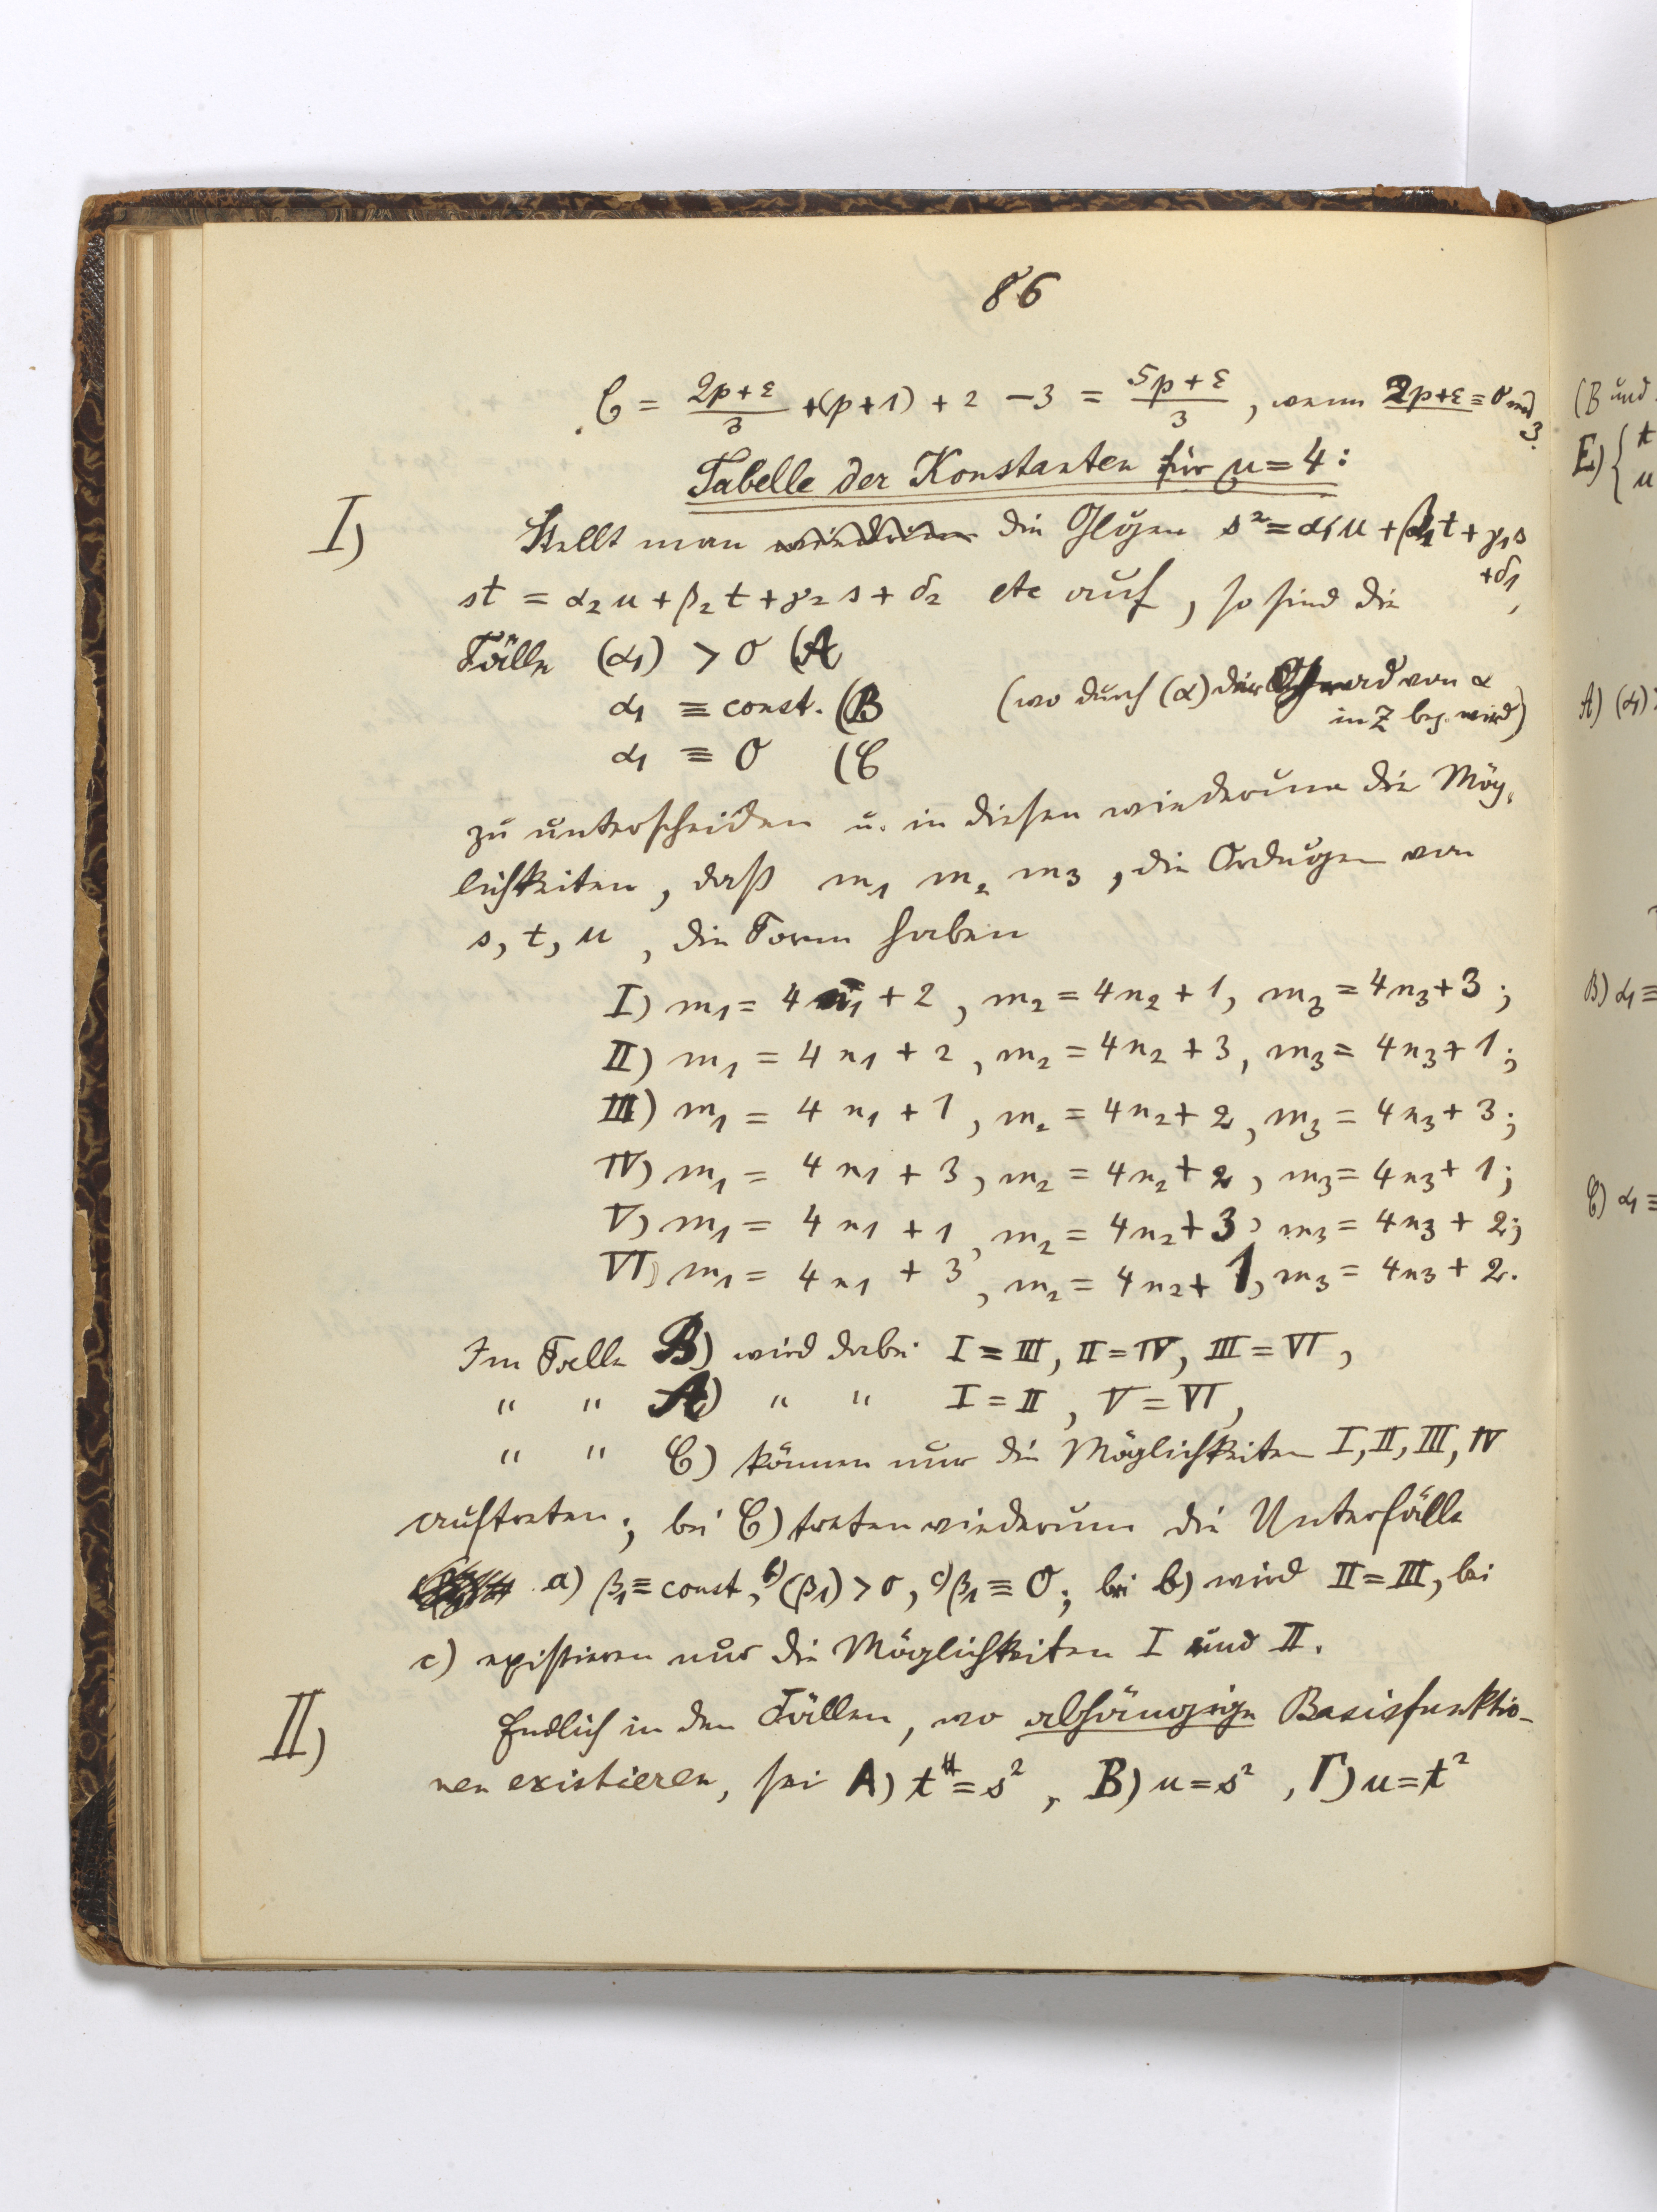 86
C = (2p+ε)/3 + (p+1) + 2 − 3 = (5p+ε)/3, wenn 2p+ε ≡ 0 mod 3.
Tabelle der Konstanten für μ = 4:
I) Stellt man wiederum die Glgen s² = α₁u + β₁t + γ₁s + δ₁,
st = α₂u + β₂t + γ₂s + δ₂ etc auf, so sind die
Fälle (α₁) > 0 (A
α₁ ≡ const. (B (wo durch (α) der Grad von α
in z bez. wird)
α₁ ≡ 0 (C
zu unterscheiden u. in diesen wiederum die Mög-
lichkeiten, daß m₁ m₂ m₃, die Ordugen von
s, t, u, die Form haben
I) m₁ = 4n₁ + 2, m₂ = 4n₂ + 1, m₃ = 4n₃ + 3;
II) m₁ = 4n₁ + 2, m₂ = 4n₂ + 3, m₃ = 4n₃ + 1;
III) m₁ = 4n₁ + 1, m₂ = 4n₂ + 2, m₃ = 4n₃ + 3;
IV) m₁ = 4n₁ + 3, m₂ = 4n₂ + 2, m₃ = 4n₃ + 1;
V) m₁ = 4n₁ + 1, m₂ = 4n₂ + 3, m₃ = 4n₃ + 2;
VI) m₁ = 4n₁ + 3, m₂ = 4n₂ + 1, m₃ = 4n₃ + 2.
Im Falle B) wird dabei I = III, II = IV, III = VI,
" " A) " " I = II, V = VI,
" " C) können nur die Möglichkeiten I, II, III, IV
auftreten; bei C) treten wiederum die Unterfälle
a) β₁ ≡ const, b) (β₁) > 0, c) β₁ ≡ 0; bei b) wird II = III, bei
c) existieren nur die Möglichkeiten I und II.
II) Endlich in den Fällen, wo abhängige Basisfunktio-
nen existieren, sei A) t = s², B) u = s², Γ) u = t²
(B und
E) { t
u
A) (α₁)
B) α₁ ≡
C) α₁ ≡